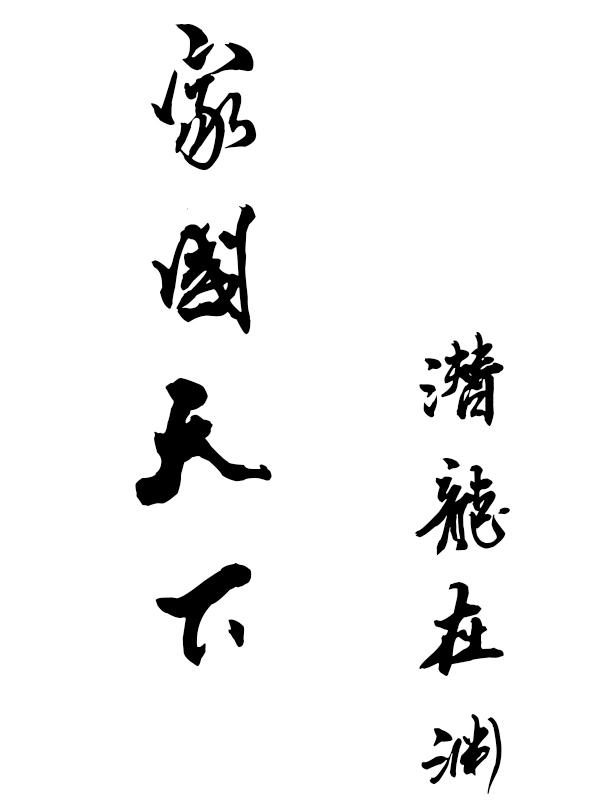 潛龍在淵
家國天下